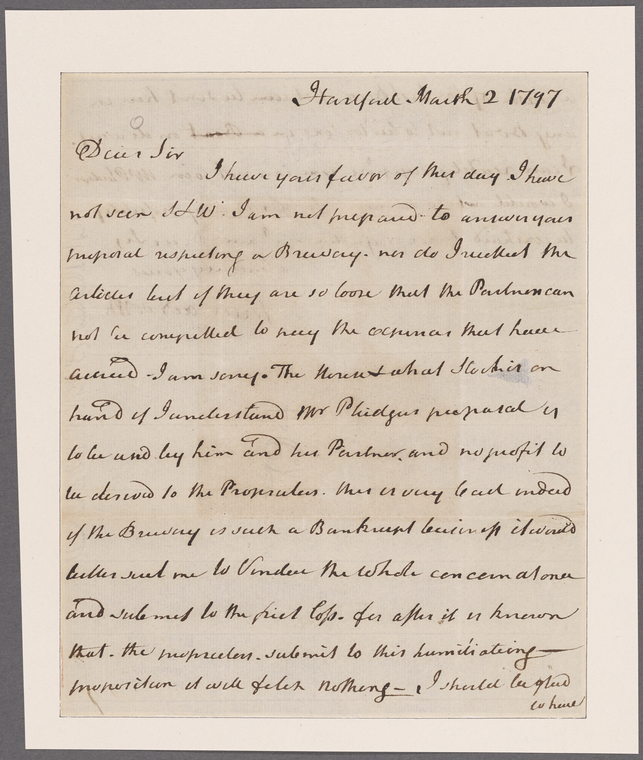 Hartford March 2 1797
Dear Sir
I have your favor of this day I have
not seen S & W. I am not prepared to answer your
proposal respecting a Brewery. nor do I recollect the
articles but if they are so loose that the Partners can
not be compelled to pay the expences that have
accrued - I am sorry. The House & what Stock is on
hand if I understand Mr Pledgers proposal is
to be used by him and his Partner. and no profit to
be derived to the Proprietors. this is very bad indeed
if the Brewery is such a Bankrupt business it would
better suit me to Vendue the whole concern at once
and submit to the first loss. for after it is known
that. the proprietors. submit to this humiliating
proposition it will fetch nothing - I should be glad
to have